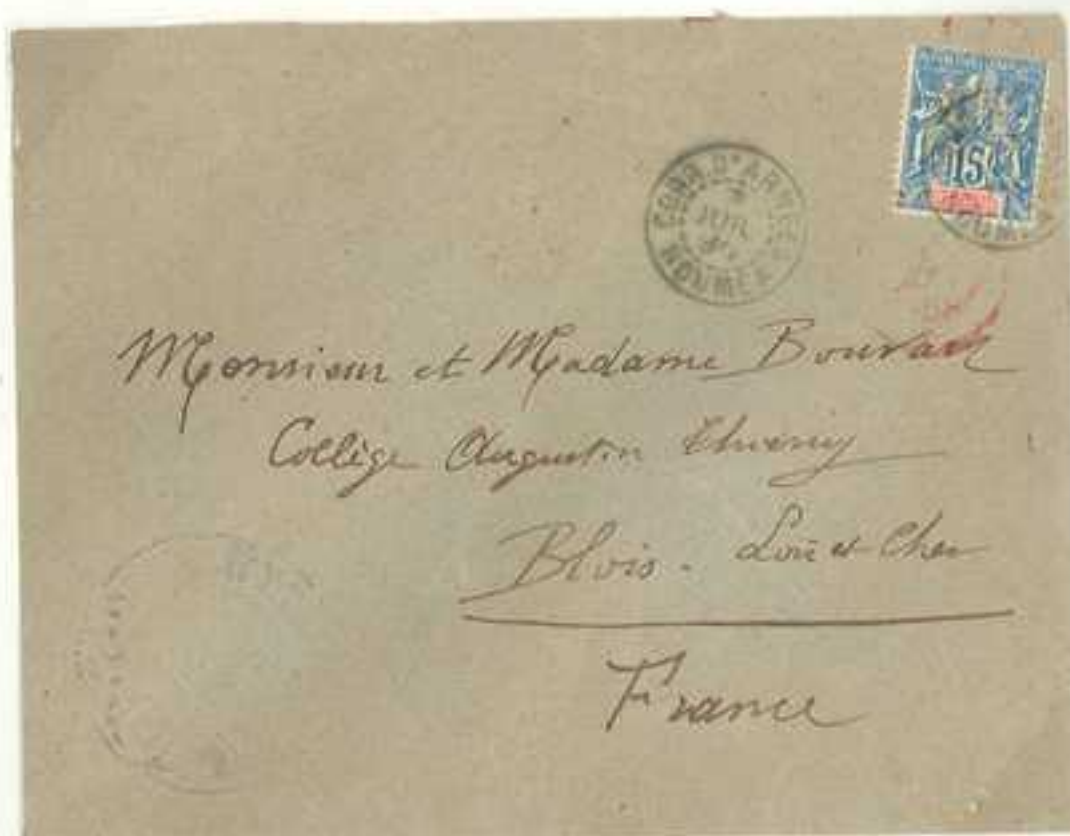 15
CORR. D'ARMÉES
JUIL
NOUMEA
Monsieur et Madame
Collège Augustin Thierry
Blois. Loir et Cher
France